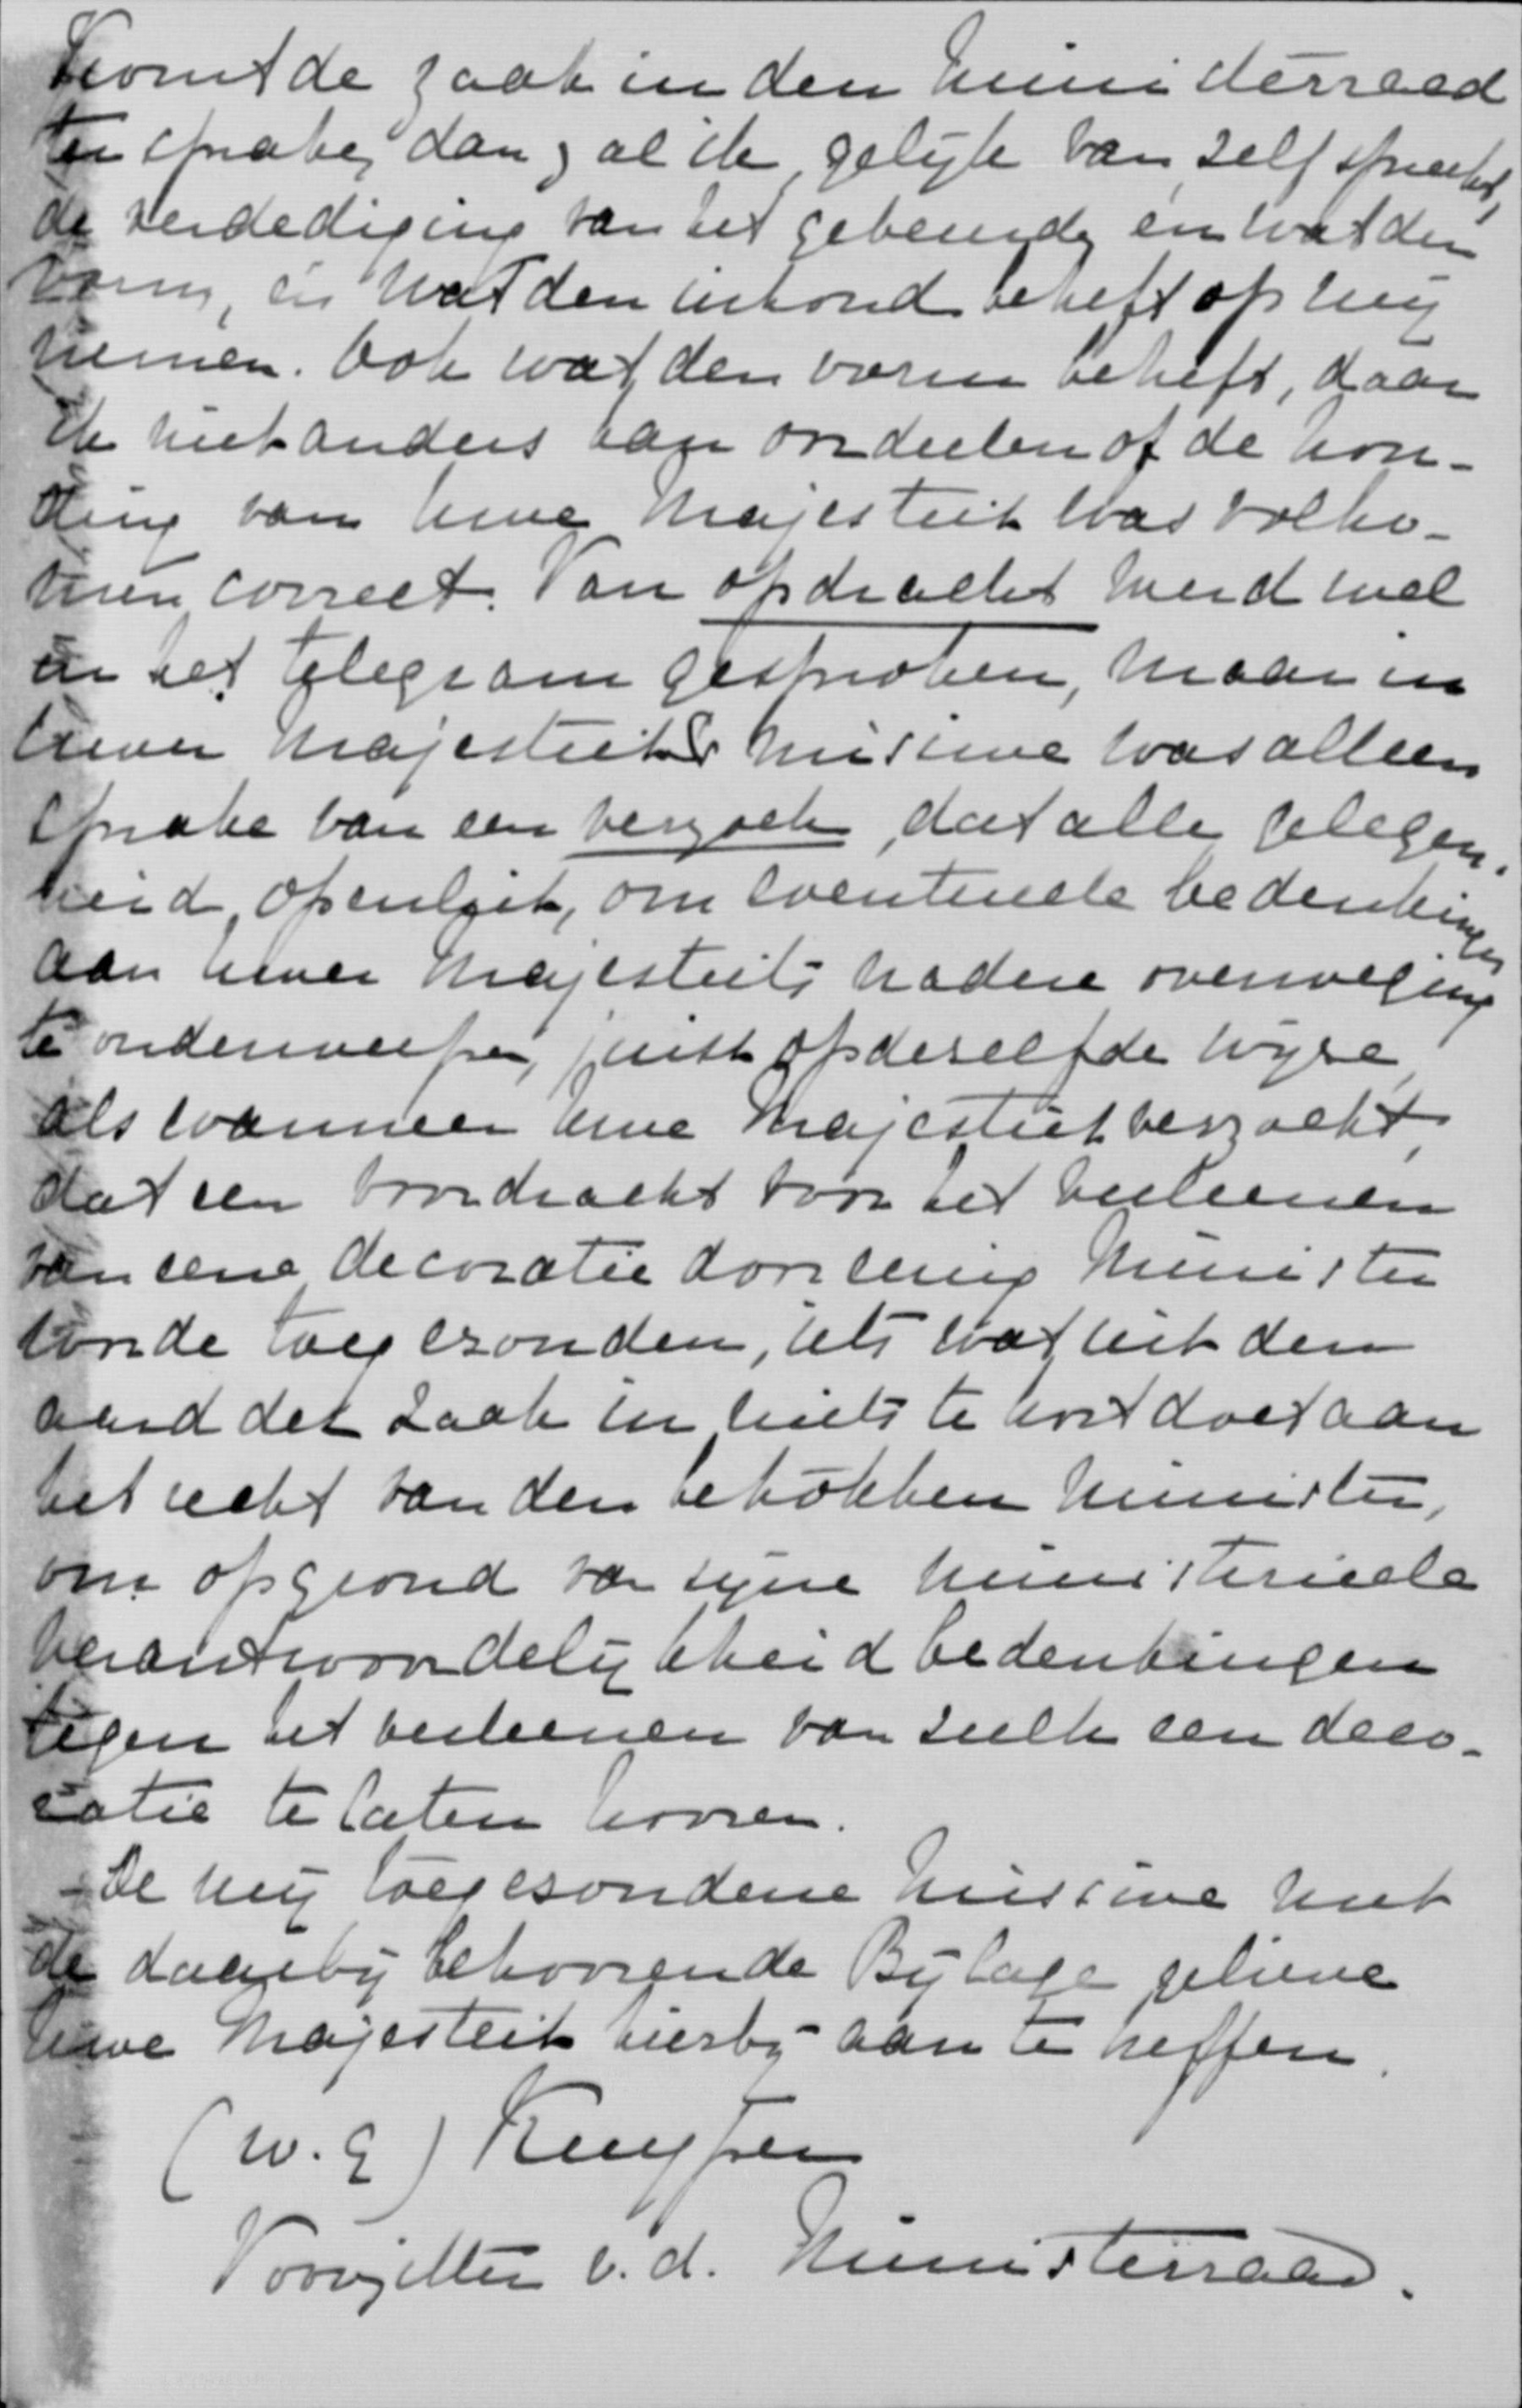 Komt de zaak in den Ministerraad
ter sprake, dan zal ik, gelijk van zelf spreekt,
de verdediging van het gebeurde, èn wat den
vorm, èn wat den inhoud betreft op mij
nemen. Ook wat den vorm betreft, daar
ik niet anders kan oordeelen of de hou-
ding van Uwe Majesteit was volko-
men correct. Van opdracht werd wel
in het telegram gesproken, maar in
Uwer Majesteits missive was alleen
sprake van een verzoek, dat alle gelegen-
heid openliet, om eventueele bedenkingen
aan Uwer Majesteits nadere overweging
te onderwerpen, juist op deselfde wijse,
als wanneer Uwe Majesteit verzoekt,
dat een voordracht voor het verleenen
van eene decoratie door eenig Minister
worde toegesonden, iets wat uit den
aard der zaak in niets te kort doet aan
het recht van den betrokken Minister,
om op grond van sijne ministerieele
verantwoordelijkheid bedenkingen
tegen het verleenen van sulk een deco-
ratie te laten hooren.
- De mij toegesondene missive met
de daarbij behoorende Bijlage gelieve
Uwe Majesteit hierbij aan te treffen.
(w.g) Kuyper
Voorzitter v.d. Ministerraad.